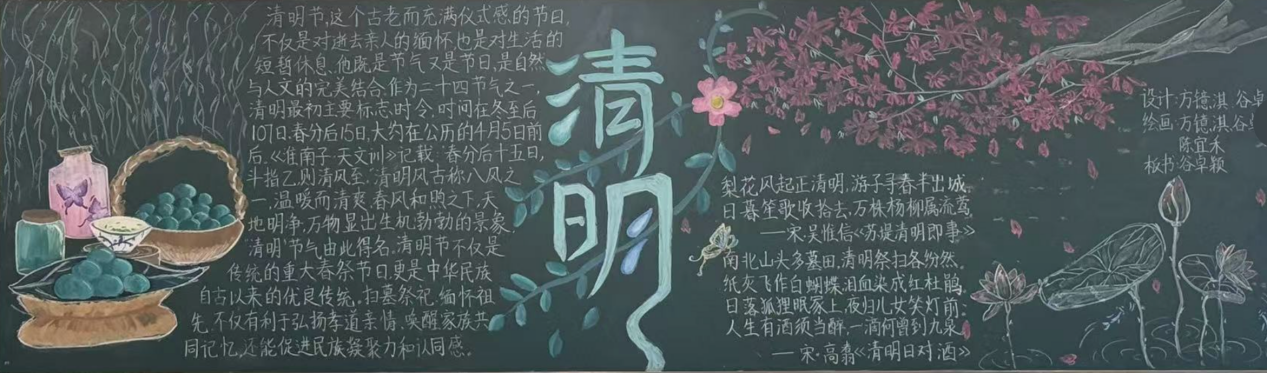 清明节,这个古老而充满仪式感的节日,
不仅是对逝去亲人的缅怀,也是对生活的
短暂休息、他既是节气又是节日,是自然
与人文的完美结合作为二十四节气之一,
清明最初主要标志时令,时间在冬至后
107日、春分后15日,大约在公历的4月5日前
后。《淮南子·天文训》记载:"春分后十五日,
斗指乙则清风至"清明风古称八风之
一,温暖而清爽,春风和煦之下,天
地明净,万物显出生机勃勃的景象,
"清明"节气由此得名。清明节不仅是
传统的重大春祭节日,更是中华民族
自古以来的优良传统。扫墓祭祀、缅怀祖
先,不仅有利于弘扬孝道亲情、唤醒家族共
同记忆,还能促进民族凝聚力和认同感。
清明
梨花风起正清明,游子寻春半出城。
日暮笙歌收拾去,万株杨柳属流莺。
——宋·吴惟信《苏堤清明即事》
南北山头多墓田,清明祭扫各纷然。
纸灰飞作白蝴蝶,泪血染成红杜鹃。
日落狐狸眠冢上,夜归儿女笑灯前。
人生有酒须当醉,一滴何曾到九泉。
——宋·高翥《清明日对酒》
设计:方镱淇 谷卓
绘画:方镱淇 谷
陈宜禾
板书:谷卓颖